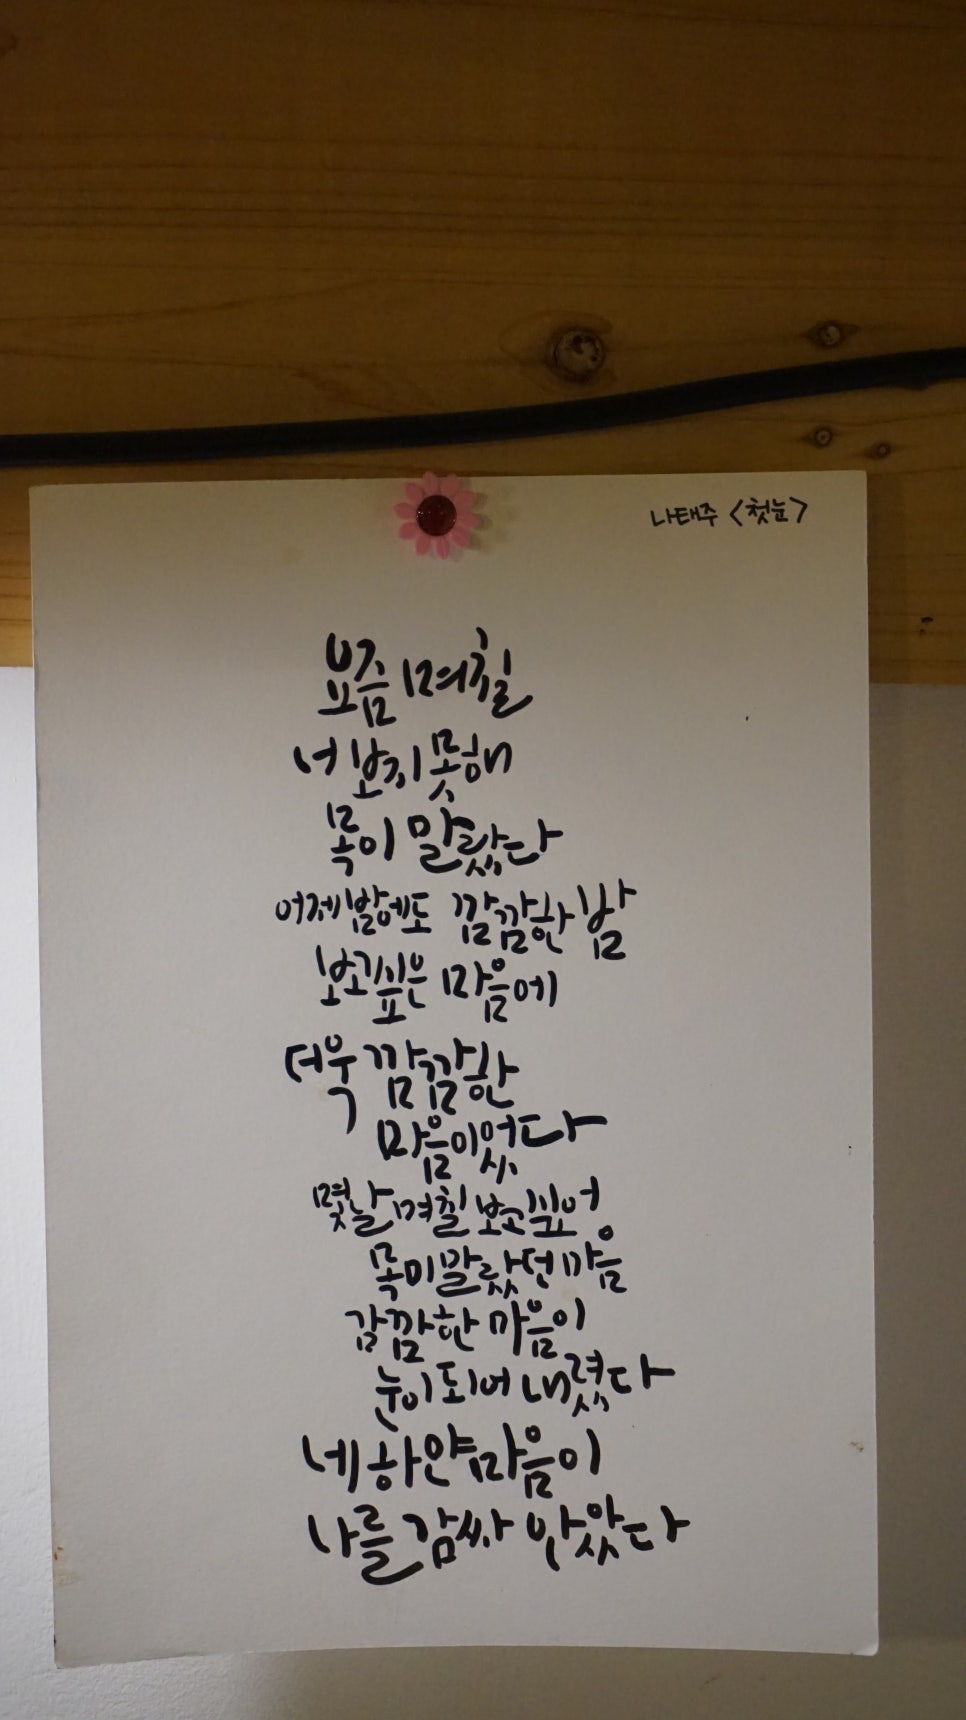 나태주 <첫눈>
요즘 며칠
너 보지 못해
목이 말랐다
어제밤에도 깜깜한 밤
보고싶은 마음에
더욱 깜깜한
마음이었다
몇날 며칠 보고싶어
목이말랐던 마음
깜깜한 마음이
눈이되어 내렸다
네 하얀마음이
나를 감싸 안았다